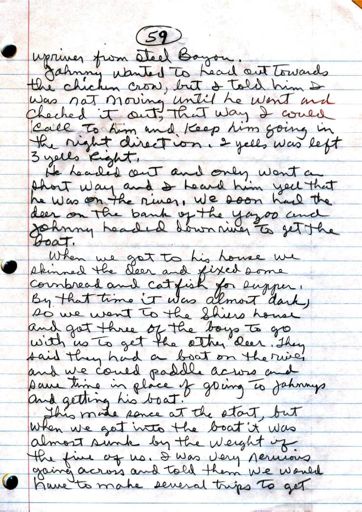 59
upriver from Steel Bayou.
Johnny wanted to head out towards
the chicken crow, but I told him I
was not moving until he went and
checked it out, that way I could
call to him and keep him going in
the right direction. 2 yells was left
3 yells right.
He headed out and only went a
short way and I heard him yell that
he was on the river. We soon had the
deer on the bank of the Yazoo and
Johnny headed downriver to get the
boat.
When we got to his house we
skinned the deer and fixed some
cornbread and catfish for supper.
By that time it was almost dark,
so we went to the house
and got three of the boys to go
with us to get the other deer. They
said they had a boat on the river
and we could paddle across and
save time in place of going to Johnnys
and getting his boat.
This made sence at the start, but
when we got into the boat it was
almost sunk by the weight of
the five of us. I was very nervious
going across and told them we would
have to make several trips to get